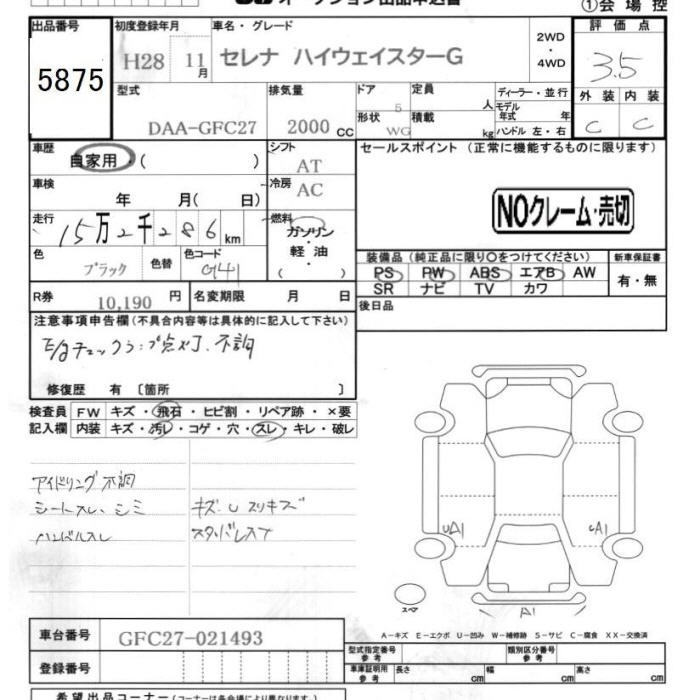 オークション出品申込書
①会場控
出品番号 初度登録年月 車名・グレード 評価点
5875 H28 11月 セレナ ハイウェイスターG 2WD ・ 4WD 3.5
型式 排気量 ドア 定員 人 ディーラー・並行 外装 内装
DAA-GFC27 2000 CC 5 モデル年式 年 C C
形状 WG 積載 kg ハンドル 左・右
車歴 自家用・( ) シフト AT セールスポイント (正常に機能するものに限ります)
車検 年 月( 日) 冷房 AC
NOクレーム・売切
走行 15万2千286km 燃料 ガソリン・軽油・( )
色 ブラック 色替 色コード G41
装備品 (純正品に限り○をつけてください) 新車保証書
PS PW ABS エアB AW 有・無
SR ナビ TV カワ
R券 10,190 円 名変期限 月 日 後日品
注意事項申告欄 (不具合内容等は具体的に記入して下さい)
E/gチェックランプ点灯、不調
修復歴 有 〔箇所 〕
検査員 FW キズ・飛石・ヒビ割・リペア跡・×要
記入欄 内装 キズ・汚レ・コゲ・穴・スレ・キレ・破レ
アイドリング不調
シートスレ、シミ キズ.U スリキズ
ハンドルスレ スタッドレス
UA1 A1
スペア A1
A-キズ E-エクボ U-凹み W-補修跡 S-サビ C-腐食 XX-交換済
車台番号 GFC27-021493
型式指定番号 参考 類別区分番号 参考
登録番号 車庫証明用 参考 長さ cm 幅 cm 高さ cm
希望出品コーナー (コーナーは各会場により異なります。)